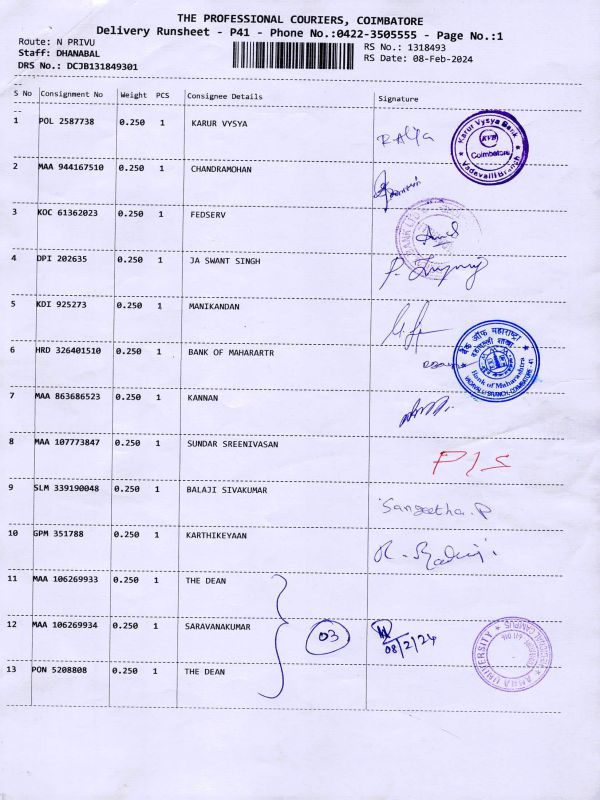 THE PROFESSIONAL COURIERS, COIMBATORE
Delivery Runsheet - P41 - Phone No.:0422-3505555 - Page No.:1
Route: N PRIVU
Staff: DHANABAL
DRS No.: DCJB131849301
RS No.: 1318493
RS Date: 08-Feb-2024
S No Consignment No Weight PCS Consignee Details Signature
1 POL 2587738 0.250 1 KARUR VYSYA
Karur Vysya Bank
KVB
Coimbatore
Vadavalli Branch
2 MAA 944167510 0.250 1 CHANDRAMOHAN
3 KOC 61362023 0.250 1 FEDSERV
4 DPI 202635 0.250 1 JA SWANT SINGH
5 KDI 925273 0.250 1 MANIKANDAN
6 HRD 326401510 0.250 1 BANK OF MAHARARTR
बैंक ऑफ महाराष्ट्र
Bank of Maharashtra
VADAVALLI BRANCH, COIMBATORE - 41
7 MAA 863686523 0.250 1 KANNAN
8 MAA 107773847 0.250 1 SUNDAR SREENIVASAN
P/S
9 SLM 339190048 0.250 1 BALAJI SIVAKUMAR Sangeetha.P
10 GPM 351788 0.250 1 KARTHIKEYAAN
11 MAA 106269933 0.250 1 THE DEAN
12 MAA 106269934 0.250 1 SARAVANAKUMAR 03
08/2/24
ANNA UNIVERSITY
REGIONAL CAMPUS
13 PON 5208808 0.250 1 THE DEAN